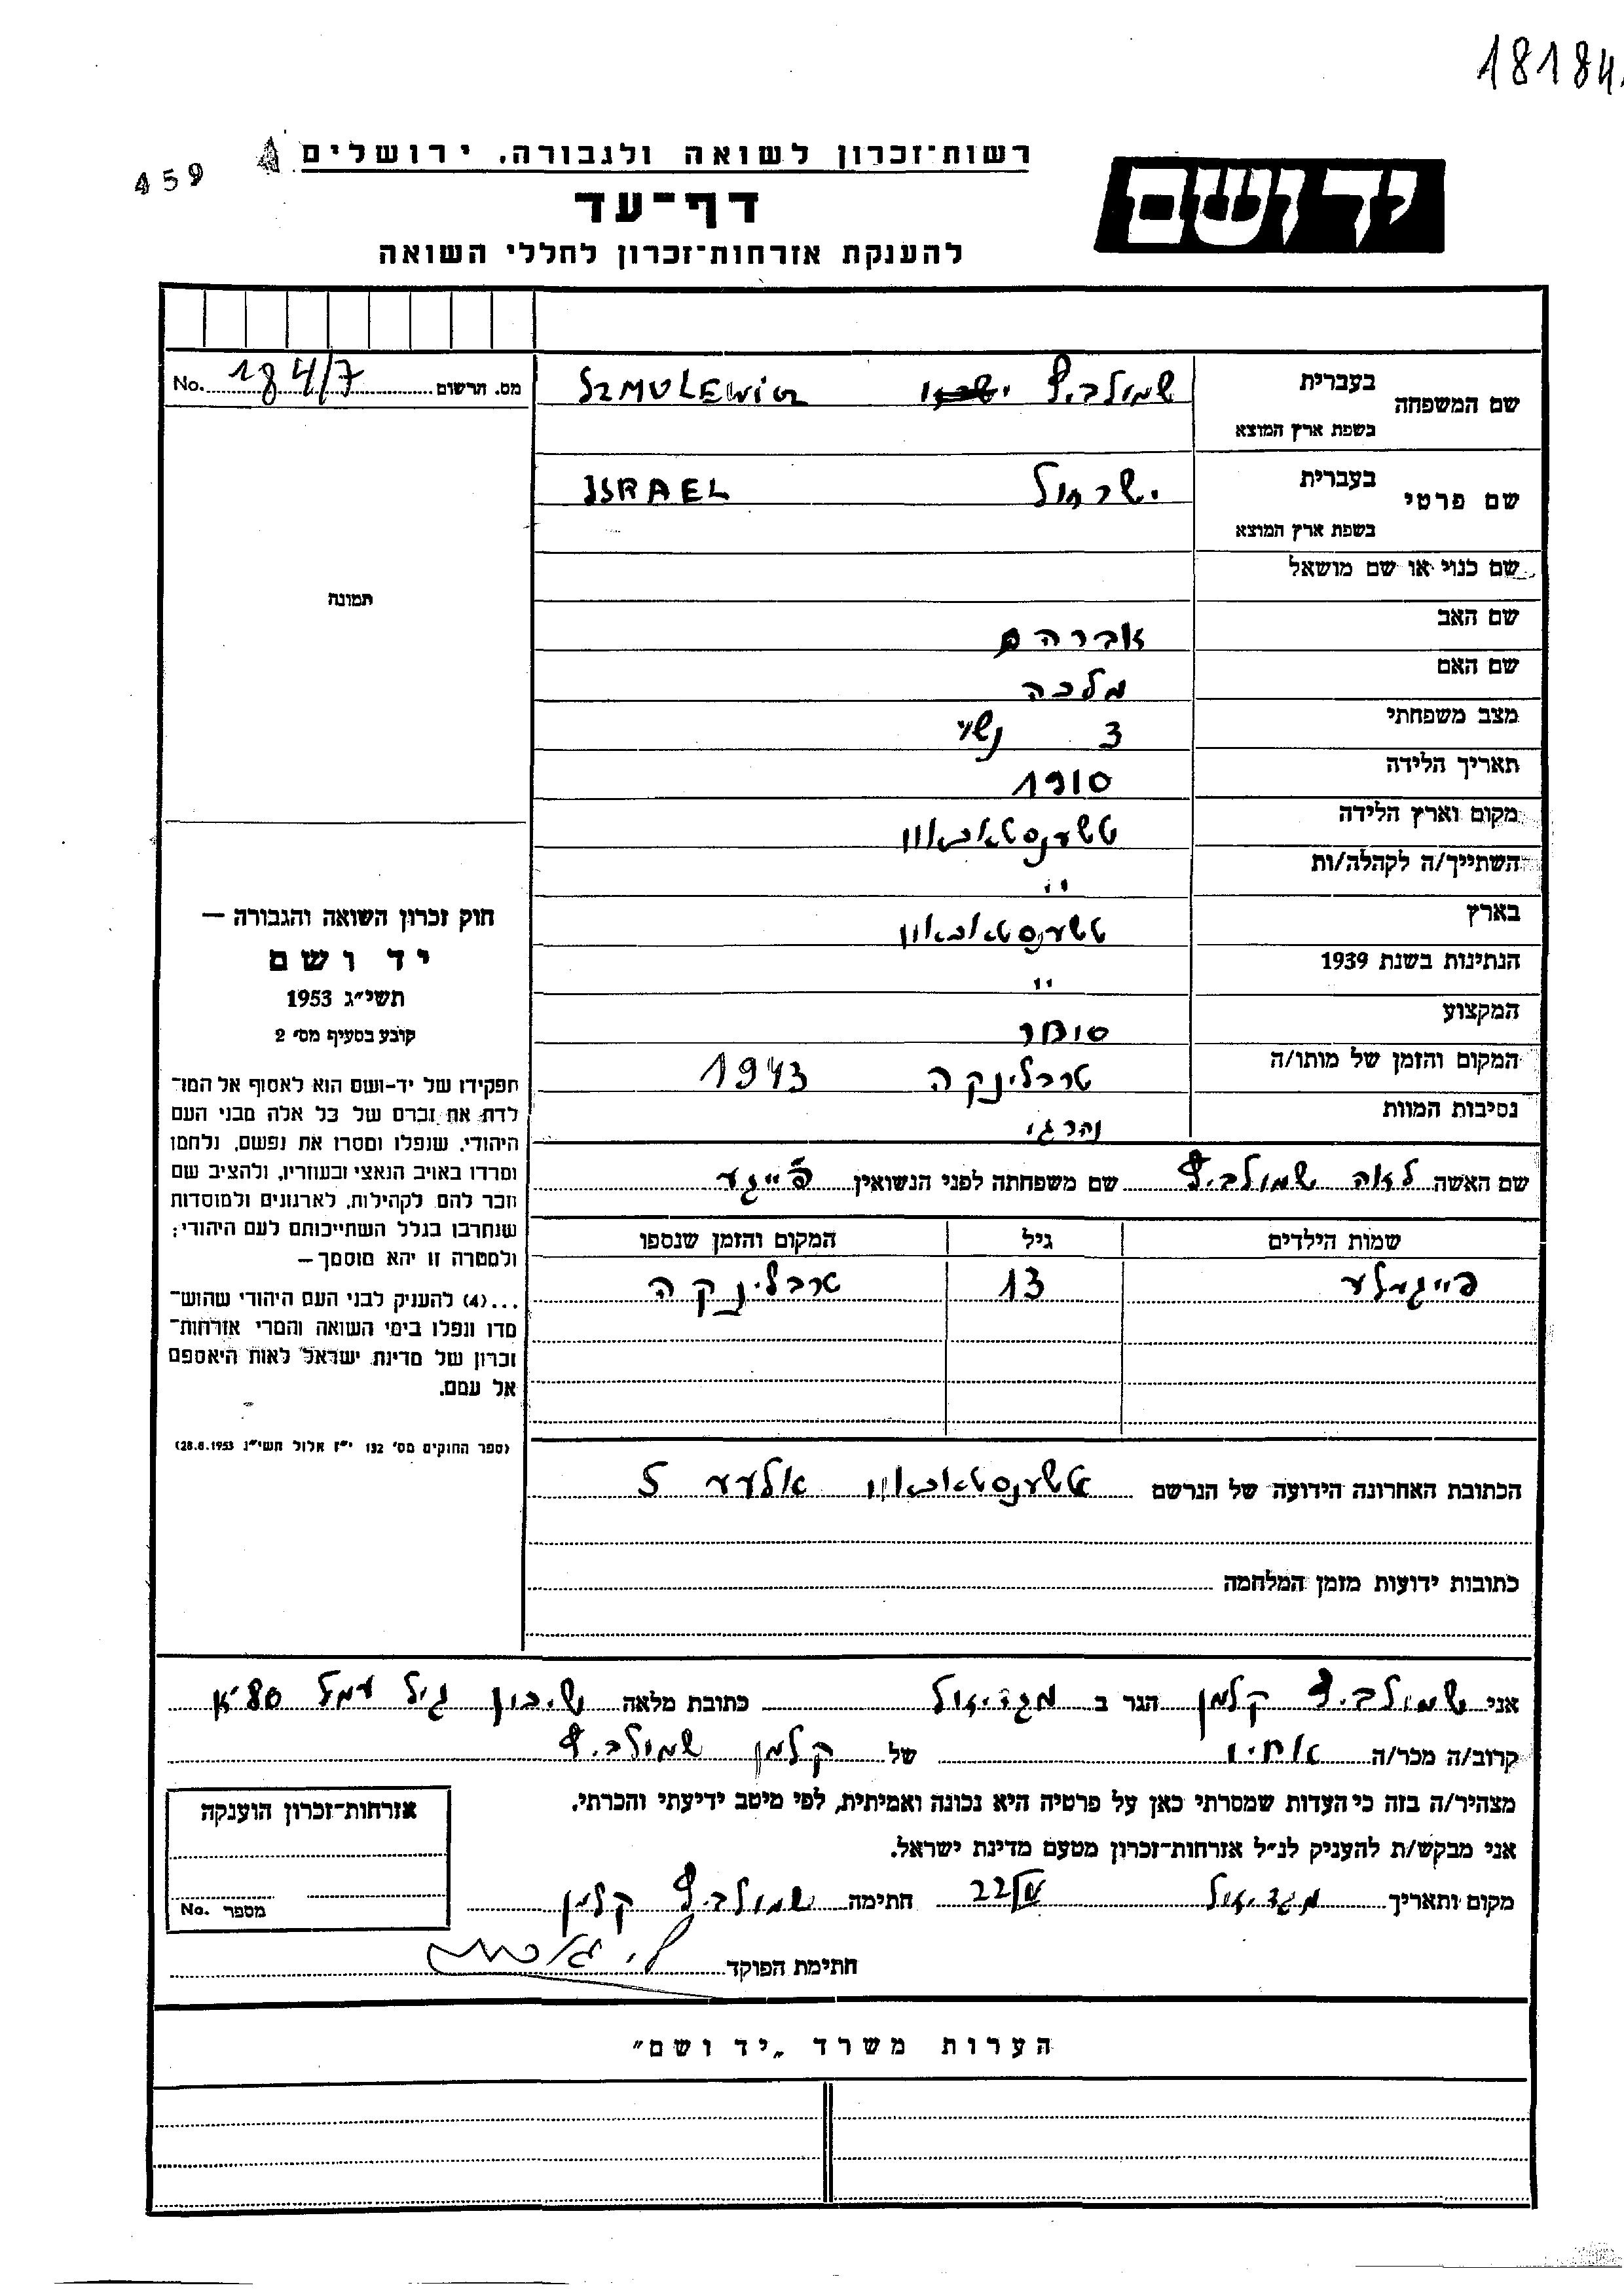 18184
459
רשות־זכרון לשואה ולגבורה, ירושלים
יד ושם
דף־עד
להענקת אזרחות־זכרון לחללי השואה
מס. הרשום 184/7 No.
שם המשפחה בעברית שמולביץ SZMULEWICZ
בשפת ארץ המוצא
שם פרטי בעברית ישראל ISRAEL
בשפת ארץ המוצא
שם כנוי או שם מושאל
תמונה
שם האב אברהם
שם האם מלכה
מצב משפחתי 3 נשוי
תאריך הלידה 1910
מקום וארץ הלידה טשענסטאכאוו
השתייך/ה לקהלה/ות "
בארץ טשענסטאכאוו
הנתינות בשנת 1939 "
המקצוע סוחר
המקום והזמן של מותו/ה טרבלינקה 1943
נסיבות המוות
שם האשה לאה שמולביץ שם משפחתה לפני הנשואין
שמות הילדים גיל המקום והזמן שנספו
פייגעלע 13 טרבלינקה
הכתובת האחרונה הידועה של הנרשם טשענסטאכאוו 5
כתובות ידועות מזמן המלחמה
חוק זכרון השואה והגבורה —
יד ושם
תשי״ג 1953
קובע בסעיף מס׳ 2
תפקידו של יד־ושם הוא לאסוף אל המו־
לדת את זכרם של כל אלה מבני העם
היהודי, שנפלו ומסרו את נפשם, נלחמו
ומרדו באויב הנאצי ובעוזריו, ולהציב שם
וזכר להם לקהילות, לארגונים ולמוסדות
שנחרבו בגלל השתייכותם לעם היהודי;
ולמטרה זו יהא מוסמך —
...(4) להעניק לבני העם היהודי שהוש־
מדו ונפלו בימי השואה והמרי אזרחות־
זכרון של מדינת ישראל לאות היאספם
אל עמם.
(ספר החוקים מס׳ 132 י״ז אלול תשי״ג 28.8.1953)
אני שמולביץ קלמן הגר ב מגדיאל כתובת מלאה שיכון גיל עמל 80
קרוב/ה מכר/ה אחיו של קלמן שמולביץ
מצהיר/ה בזה כי העדות שמסרתי כאן על פרטיה היא נכונה ואמיתית, לפי מיטב ידיעתי והכרתי.
אני מבקש/ת להעניק לנ״ל אזרחות־זכרון מטעם מדינת ישראל.
מקום ותאריך מגדיאל 22/IV חתימה שמולביץ קלמן
חתימת הפוקד
אזרחות־זכרון הוענקה
מספר No.
הערות משרד „יד ושם״